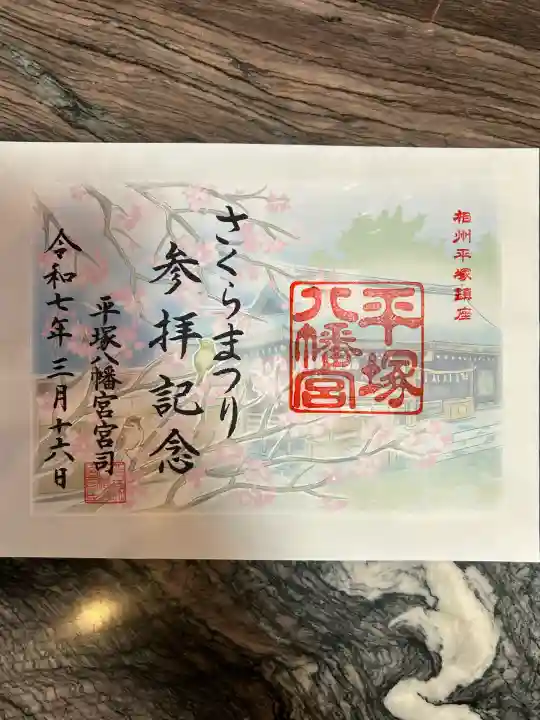 相州平塚鎮座
平塚
八幡宮
さくらまつり
参拝記念
平塚八幡宮宮司
令和七年三月十六日